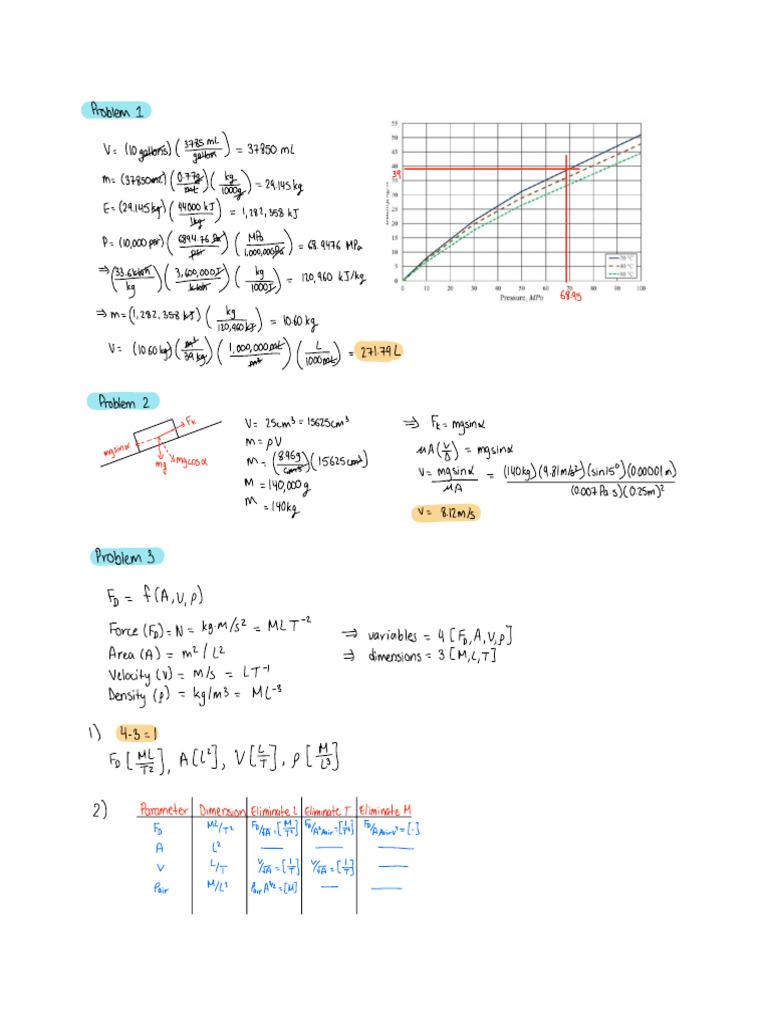 Problem 1
V = (10 gallons) (3785 mL / gallon) = 37850 mL
m = (37850 mL) (0.77g / mL) (kg / 1000g) = 29.145 kg
E = (29.145 kg) (44000 kJ / 1kg) = 1,282,358 kJ
P = (10,000 psi) (6894.76 Pa / psi) (MPa / 1,000,000 Pa) = 68.9476 MPa
⇒ (33.6 kWh / kg) (3,600,000J / kWh) (kg / 1000J) = 120,960 kJ/kg
⇒ m = (1,282,358 kJ) (kg / 120,960 kJ) = 10.60 kg
V = (10.60 kg) (m³ / 39 kg) (1,000,000 mL / m³) (L / 1000mL) = 271.79 L
55
50
45
40
39
35
30
25
20
15
10
5
0
0 10 20 30 40 50 60 70 80 90 100
68.95
Pressure, MPa
Problem 2
Fk
mg sinα
mg
mg cosα
V = 25cm³ = 15625cm³
m = ρV
m = (8.96g / cm³) (15625 cm³)
M = 140,000 g
m = 140kg
⇒ Fk = mg sinα
μA (v / δ) = mg sinα
V = mg sinα / μA = (140kg)(9.81m/s²)(sin15°)(0.00001m) / (0.007 Pa·s)(0.25m)²
V = 8.12m/s
Problem 3
F_D = f(A, V, ρ)
Force (F_D) = N = kg·m/s² = MLT⁻²
Area (A) = m² / L²
Velocity (V) = m/s = LT⁻¹
Density (ρ) = kg/m³ = ML⁻³
⇒ variables = 4 [F_D, A, V, ρ]
⇒ dimensions = 3 [M, L, T]
1) 4-3 = 1
F_D [ML / T²], A [L²], V [L / T], ρ [M / L³]
2) Parameter Dimension Eliminate L Eliminate T Eliminate M
F_D ML/T² F_D/√A = [M / T²] F_D/A²ρair = [1 / T²] F_D/Aρair v² = [-]
A L² — — —
V L/T V/√A = [1 / T] V/√A = [1 / T] —
ρair M/L³ ρair A^3/2 = [M] — —